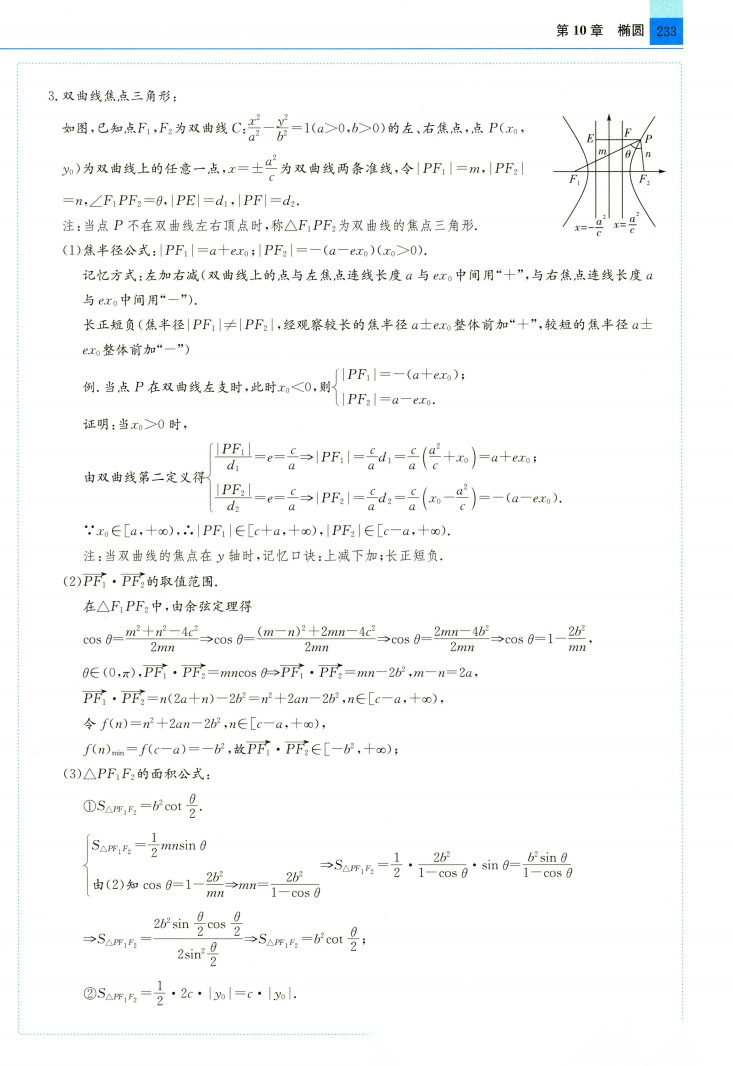 第10章 椭圆 233
3.双曲线焦点三角形:
如图,已知点F₁,F₂为双曲线C:x²/a²−y²/b²=1(a>0,b>0)的左、右焦点,点P(x₀,
y₀)为双曲线上的任意一点,x=±a²/c为双曲线两条准线,令|PF₁|=m,|PF₂|
=n,∠F₁PF₂=θ,|PE|=d₁,|PF|=d₂.
E F P
m θ n
F₁ F₂
x=−a²/c x=a²/c
注:当点P不在双曲线左右顶点时,称△F₁PF₂为双曲线的焦点三角形.
(1)焦半径公式:|PF₁|=a+ex₀;|PF₂|=−(a−ex₀)(x₀>0).
记忆方式:左加右减(双曲线上的点与左焦点连线长度a与ex₀中间用“+”,与右焦点连线长度a
与ex₀中间用“−”).
长正短负(焦半径|PF₁|≠|PF₂|,经观察较长的焦半径a±ex₀整体前加“+”,较短的焦半径a±
ex₀整体前加“−”)
例.当点P在双曲线左支时,此时x₀<0,则{|PF₁|=−(a+ex₀);
|PF₂|=a−ex₀.
证明:当x₀>0时,
由双曲线第二定义得{|PF₁|/d₁=e=c/a⇒|PF₁|=c/a d₁=c/a(a²/c+x₀)=a+ex₀;
|PF₂|/d₂=e=c/a⇒|PF₂|=c/a d₂=c/a(x₀−a²/c)=−(a−ex₀).
∵x₀∈[a,+∞),∴|PF₁|∈[c+a,+∞),|PF₂|∈[c−a,+∞).
注:当双曲线的焦点在y轴时,记忆口诀:上减下加;长正短负.
(2)PF₁→·PF₂→的取值范围.
在△F₁PF₂中,由余弦定理得
cos θ=(m²+n²−4c²)/2mn⇒cos θ=((m−n)²+2mn−4c²)/2mn⇒cos θ=(2mn−4b²)/2mn⇒cos θ=1−2b²/mn,
θ∈(0,π),PF₁→·PF₂→=mncos θ⇒PF₁→·PF₂→=mn−2b²,m−n=2a,
PF₁→·PF₂→=n(2a+n)−2b²=n²+2an−2b²,n∈[c−a,+∞),
令f(n)=n²+2an−2b²,n∈[c−a,+∞),
f(n)min=f(c−a)=−b²,故PF₁→·PF₂→∈[−b²,+∞);
(3)△PF₁F₂的面积公式:
①S△PF₁F₂=b²cot θ/2.
{S△PF₁F₂=1/2 mnsin θ
由(2)知cos θ=1−2b²/mn⇒mn=2b²/(1−cos θ) ⇒S△PF₁F₂=1/2·2b²/(1−cos θ)·sin θ=b²sin θ/(1−cos θ)
⇒S△PF₁F₂=(2b²sin θ/2 cos θ/2)/(2sin² θ/2)⇒S△PF₁F₂=b²cot θ/2;
②S△PF₁F₂=1/2·2c·|y₀|=c·|y₀|.